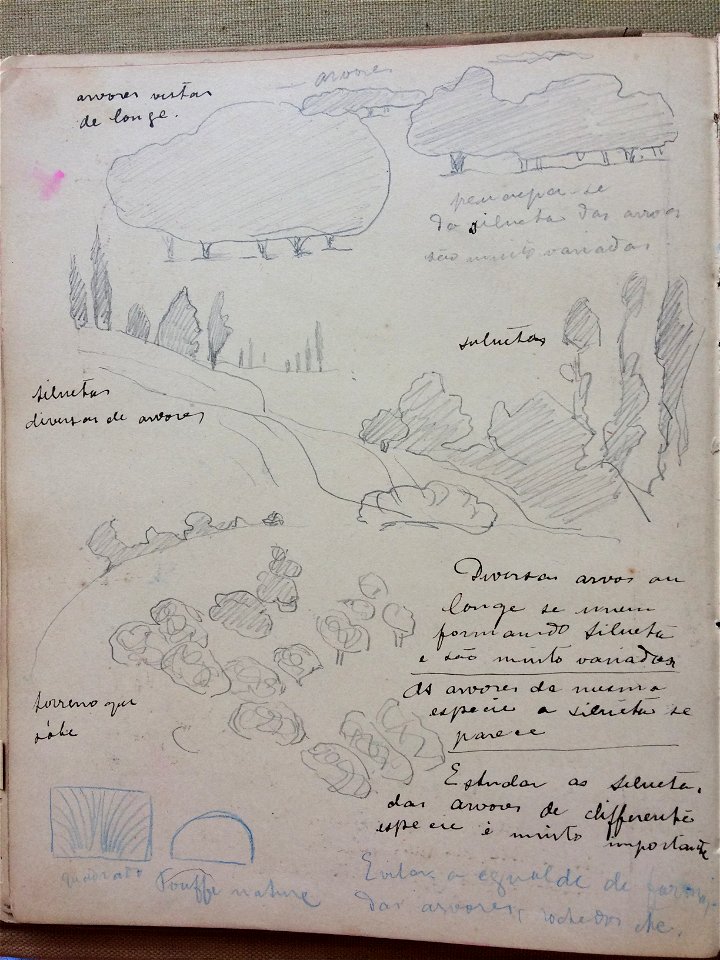 arvores
arvores vistas
de longe.
da silueta das arvores
são muito variadas.
siluetas
siluetas
diversas de arvores
Diversas arvos ao
longe se unem
formando silueta
e são muito variadas
As arvores da mesma
especie a silueta se
parece
terreno que
sóbe
Estudar as silueta.
das arvores de differente
especie é muito importante
quadrato
Touffe nature
Evitar a egualde de formas
das arvores, rochedos etc.